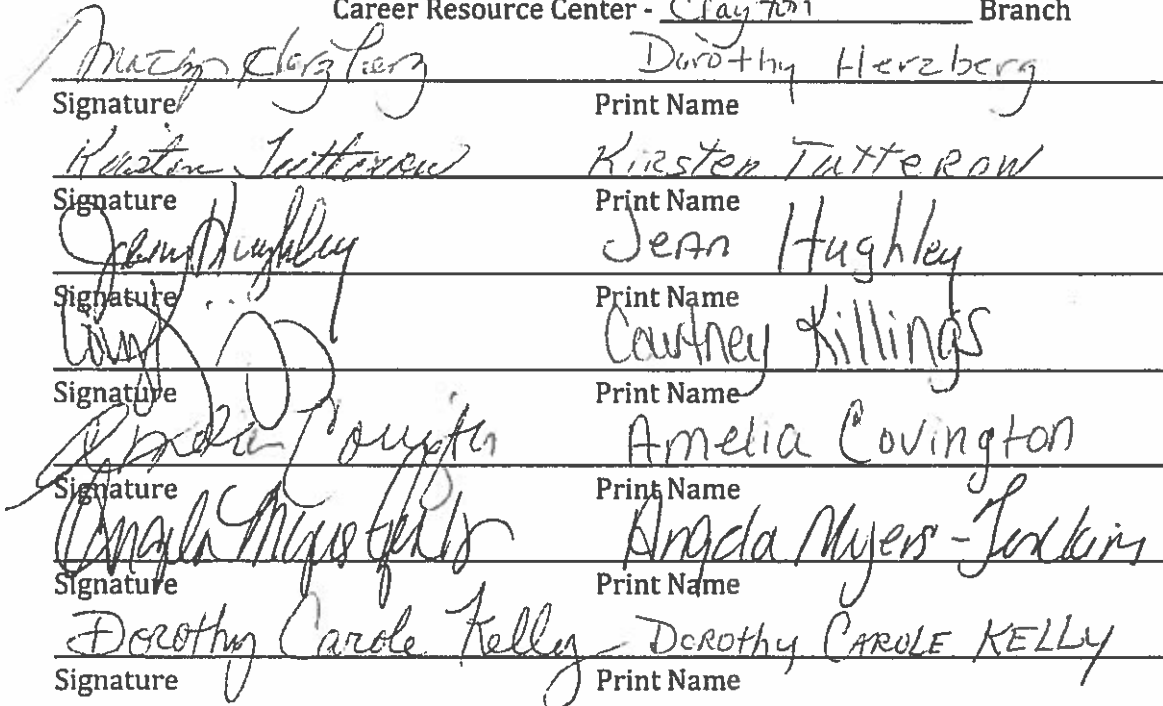 Career Resource Center - Clayton Branch
Dorothy Herzberg
Signature Print Name
Kirsten Tutterow Kirsten Tutterow
Signature Print Name
Jean Hughley Jean Hughley
Signature Print Name
Courtney Killings
Signature Print Name
Amelia Covington Amelia Covington
Signature Print Name
Angela Myers-Jenkins Angela Myers-Jenkins
Signature Print Name
Dorothy Carole Kelly Dorothy CAROLE KELLY
Signature Print Name